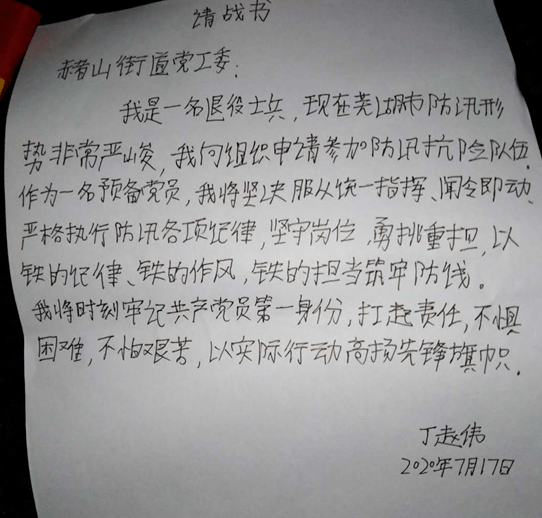 请战书
赭山街道党工委：
我是一名退役士兵，现在芜湖市防讯形
势非常严峻，我向组织申请参加防讯抗险队伍.
作为一名预备党员，我将坚决服从统一指挥、闻令即动、
严格执行防讯各项纪律，坚守岗位，勇挑重担，以
铁的纪律、铁的作风，铁的担当筑牢防线。
我将时刻牢记共产党员第一身份，扛起责任，不惧
困难，不怕艰苦，以实际行动高扬先锋旗帜.
丁赵伟
2020年7月17日